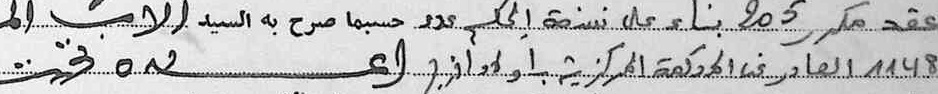 عقد مكرر 205 بناء على نسخة الحكم عدد حسبما صرح به السيد الاب
1148 الصادر عن المحكمة المركزية